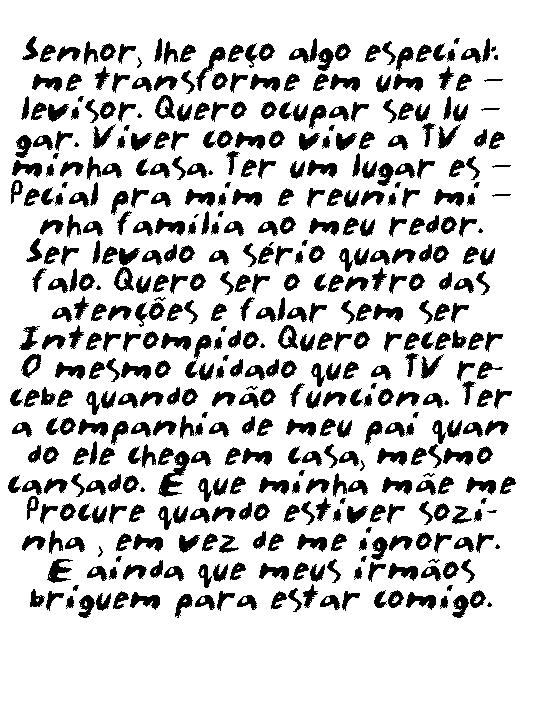 Senhor, lhe peço algo especial:
me transforme em um te -
levisor. Quero ocupar seu lu -
gar. Viver como vive a TV de
minha casa. Ter um lugar es -
Pecial pra mim e reunir mi -
nha família ao meu redor.
Ser levado a sério quando eu
falo. Quero ser o centro das
atenções e falar sem ser
Interrompido. Quero receber
O mesmo cuidado que a TV re-
cebe quando não funciona. Ter
a companhia de meu pai quan
do ele chega em casa, mesmo
cansado. E que minha mãe me
Procure quando estiver sozi-
nha , em vez de me ignorar.
E ainda que meus irmãos
briguem para estar comigo.